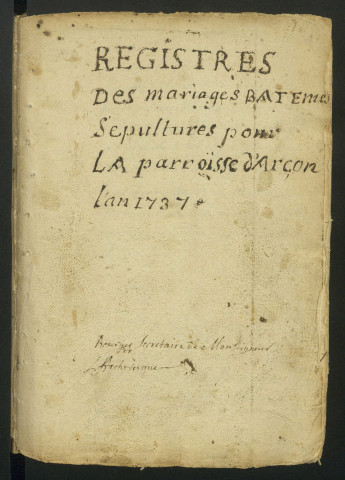 REGISTRES
Des mariages BATEMes
Sepultures pour
LA parroisse d'Arçon
l'an 1737
Secretaire de Monseigneur
L'Archevêque